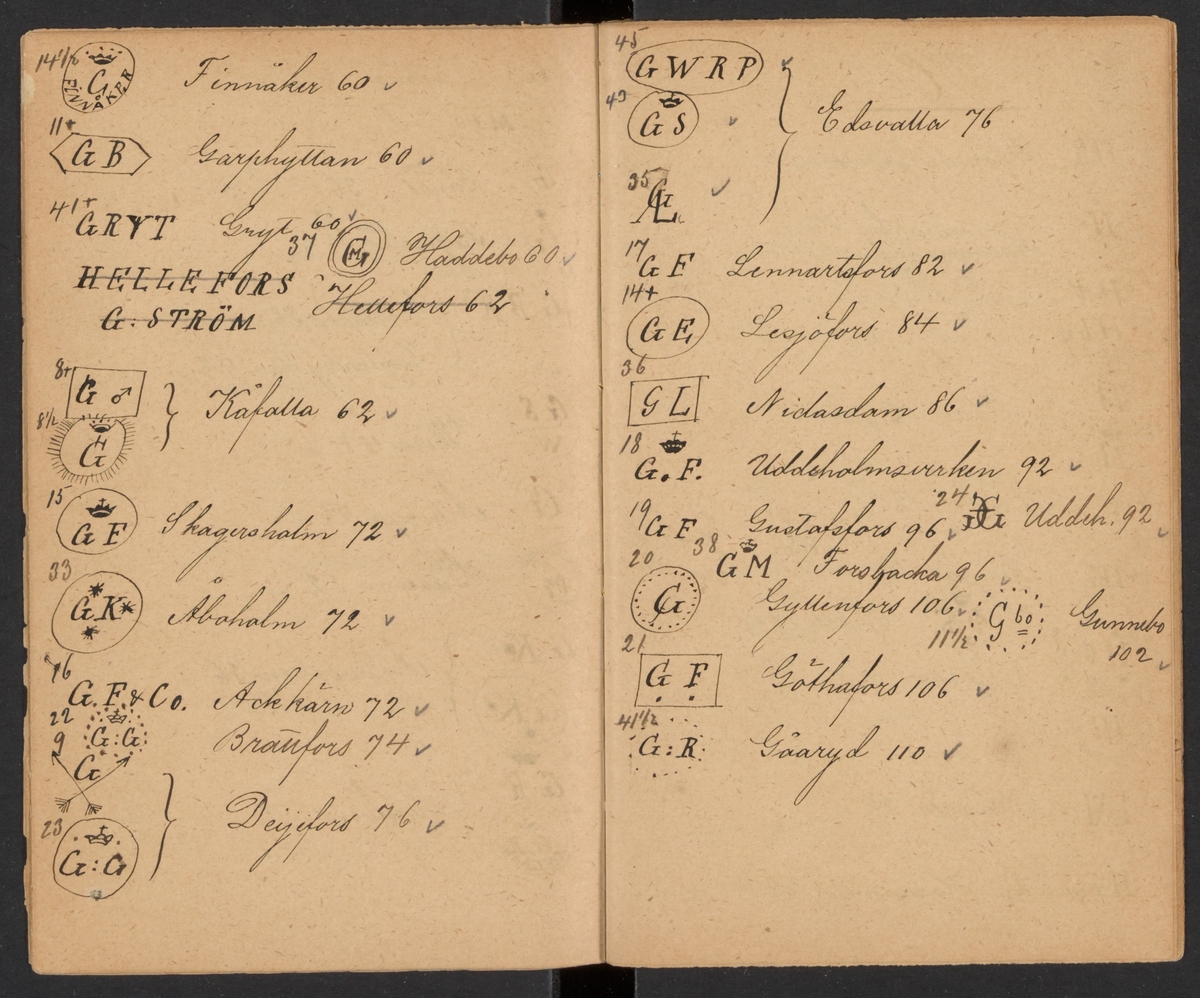 14 1/2 G FINNÅKER Finnåker 60
11+ G B Garphyttan 60
41+ GRYT Gryt 60
37 G M Haddebo 60
HELLEFORS Hellefors 62
G: STRÖM
8+ G ♂
Kåfalla 62
8 1/2 H G
15 G F Skagersholm 72
33 G K Åboholm 72
16 G. F. & Co. Ackkärn 72
22 G:G Brattfors 74
9 G
Deijefors 76
23 G:G
45 G W R P
43 G S Edsvalla 76
35 G AL
17 G F Lennartsfors 82
14+ G E Lesjöfors 84
36 G L Nidasdam 86
18 G. F. Uddeholmsverken 92
24+ GG Uddeh. 92
19 G F Gustafsfors 96
38 G M Forsbacka 96
20 G Gyllenfors 106
11 1/2 G bo Gunnebo
102
21 G F Göthafors 106
41 1/2 G:R Gåaryd 110